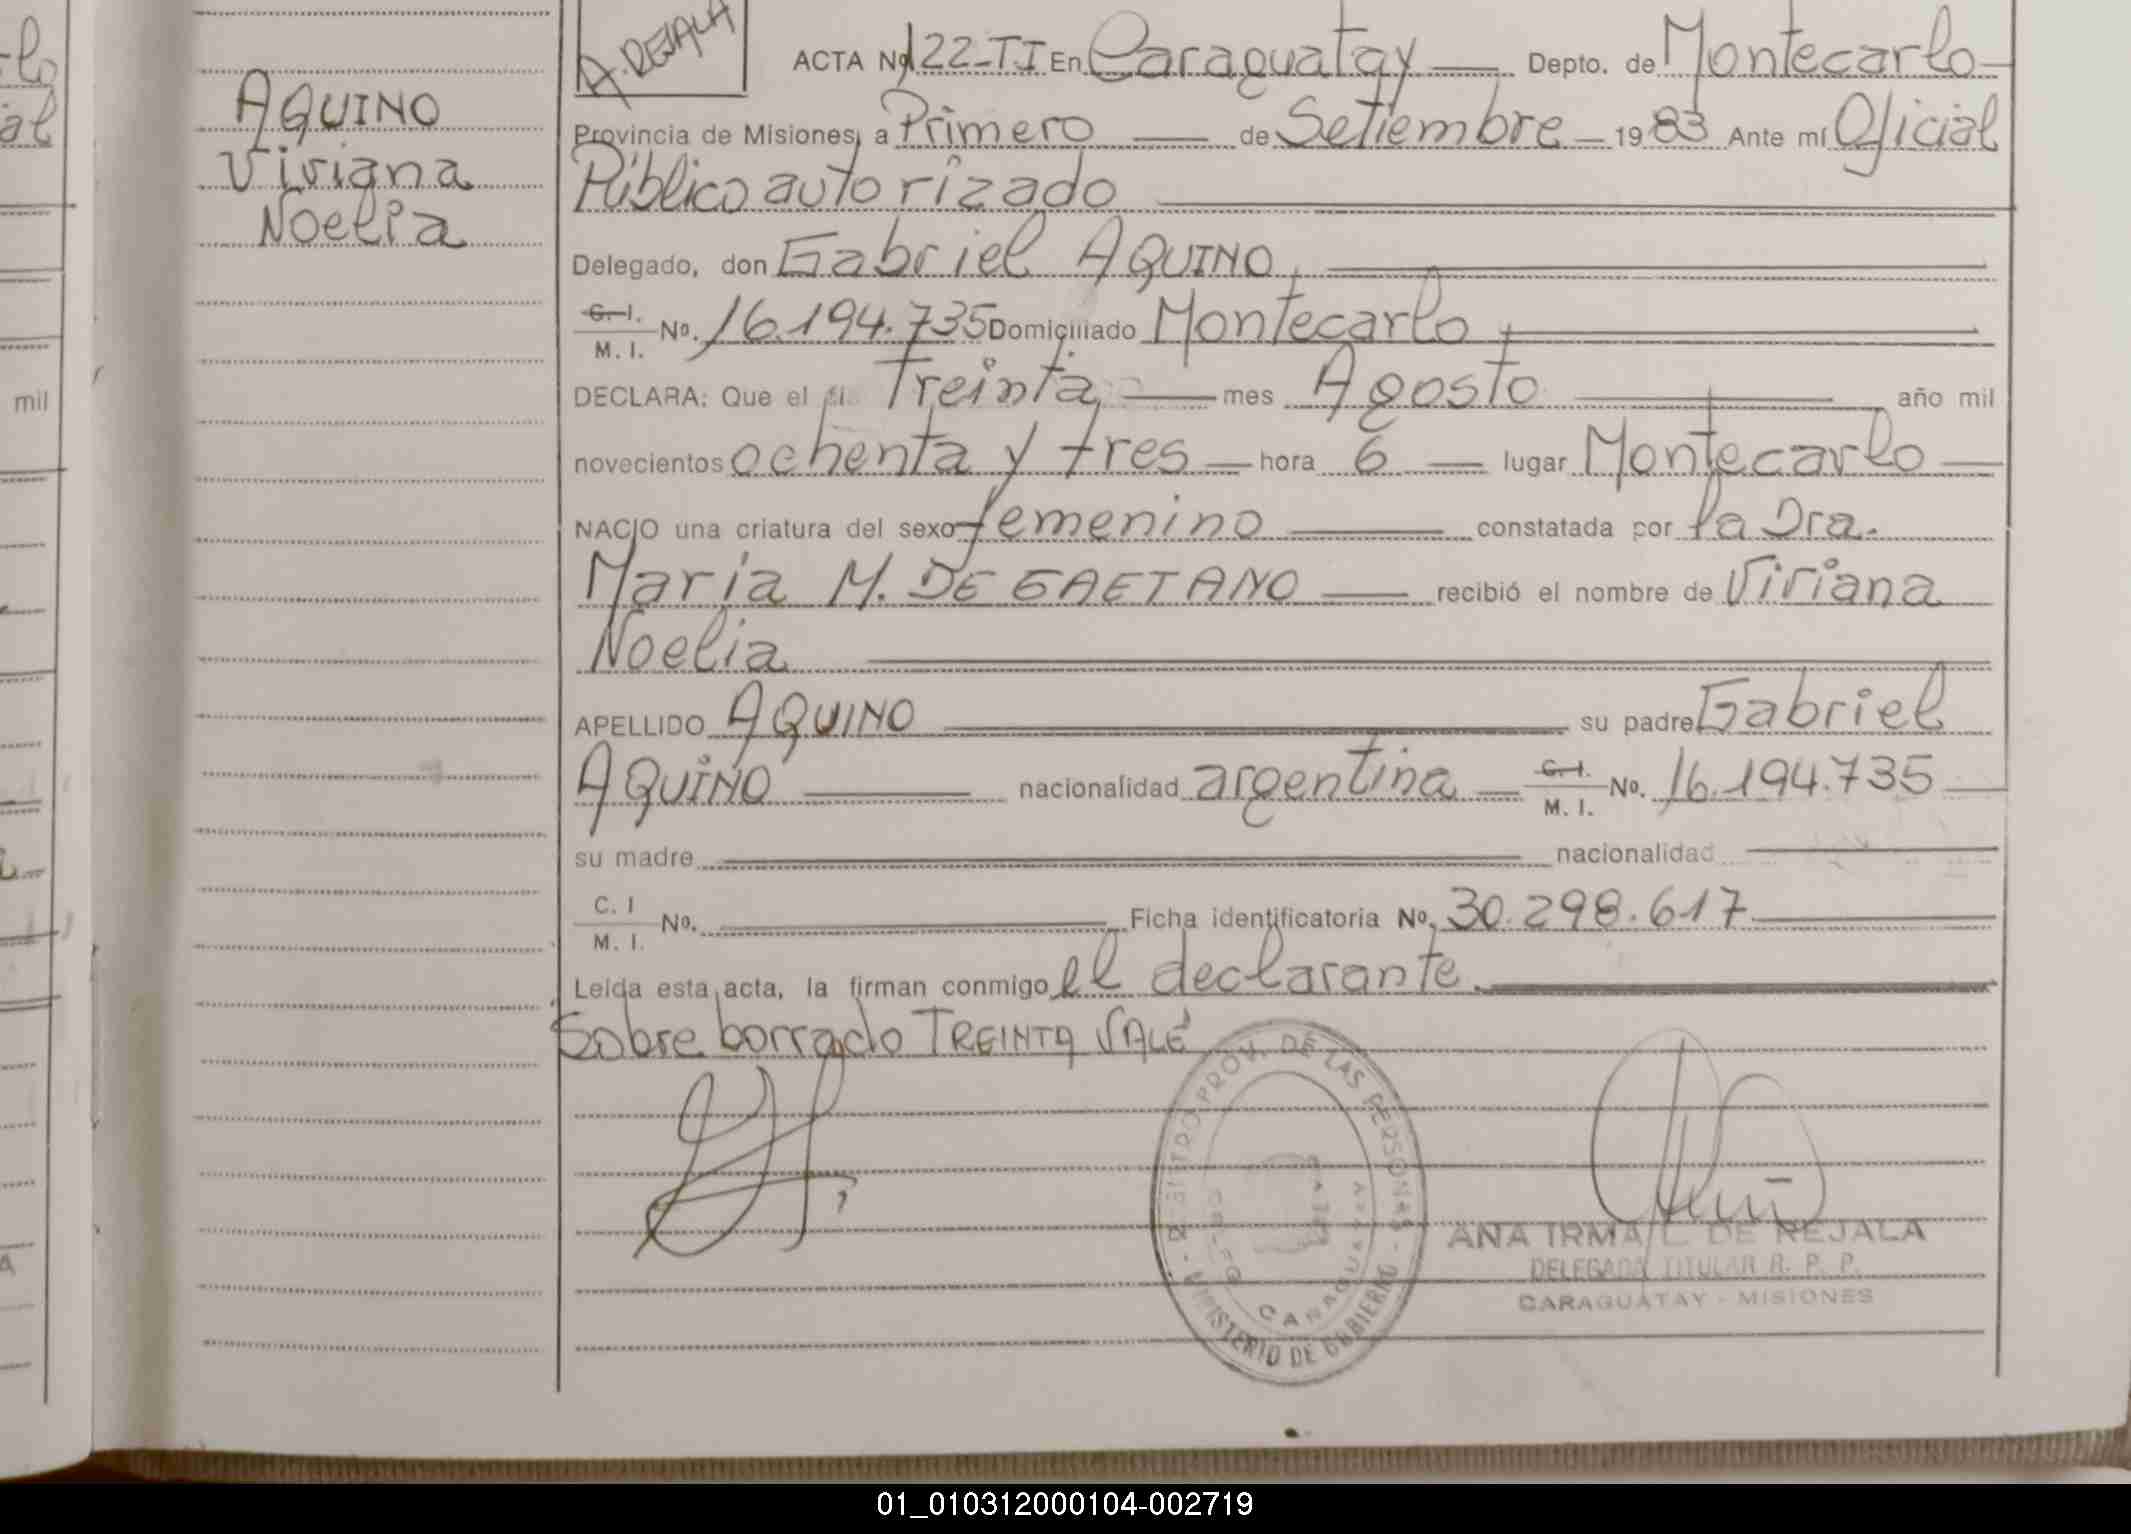 A. REJALA
ACTA Nº 122-TI En Caraguatay Depto. de Montecarlo
AQUINO
Viviana
Noelia
Provincia de Misiones, a Primero de Setiembre 1983 Ante mí Oficial
Público autorizado
Delegado, don Gabriel AQUINO,
C. I.
M. I. No. 16.194.735 Domiciliado Montecarlo,
DECLARA: Que el Treinta, mes Agosto año mil
novecientos ochenta y tres hora 6 lugar Montecarlo
NACIO una criatura del sexo femenino constatada por la Dra.
Maria M. DE GAETANO recibió el nombre de Viviana
Noelia
APELLIDO AQUINO su padre Gabriel
AQUINO nacionalidad argentina C. I.
M. I. No. 16.194.735
su madre nacionalidad
C. I
M. I. No. Ficha identificatoria No. 30.298.617
Leída esta acta, la firman conmigo el declarante.
Sobre borrado TREINTA VALE
REGISTRO PROV. DE LAS PERSONAS - MINISTERIO DE GOBIERNO
CARAGUATAY
ANA IRMA L. DE REJALA
DELEGADA TITULAR R. P. P.
CARAGUATAY - MISIONES
mil
01_010312000104-002719